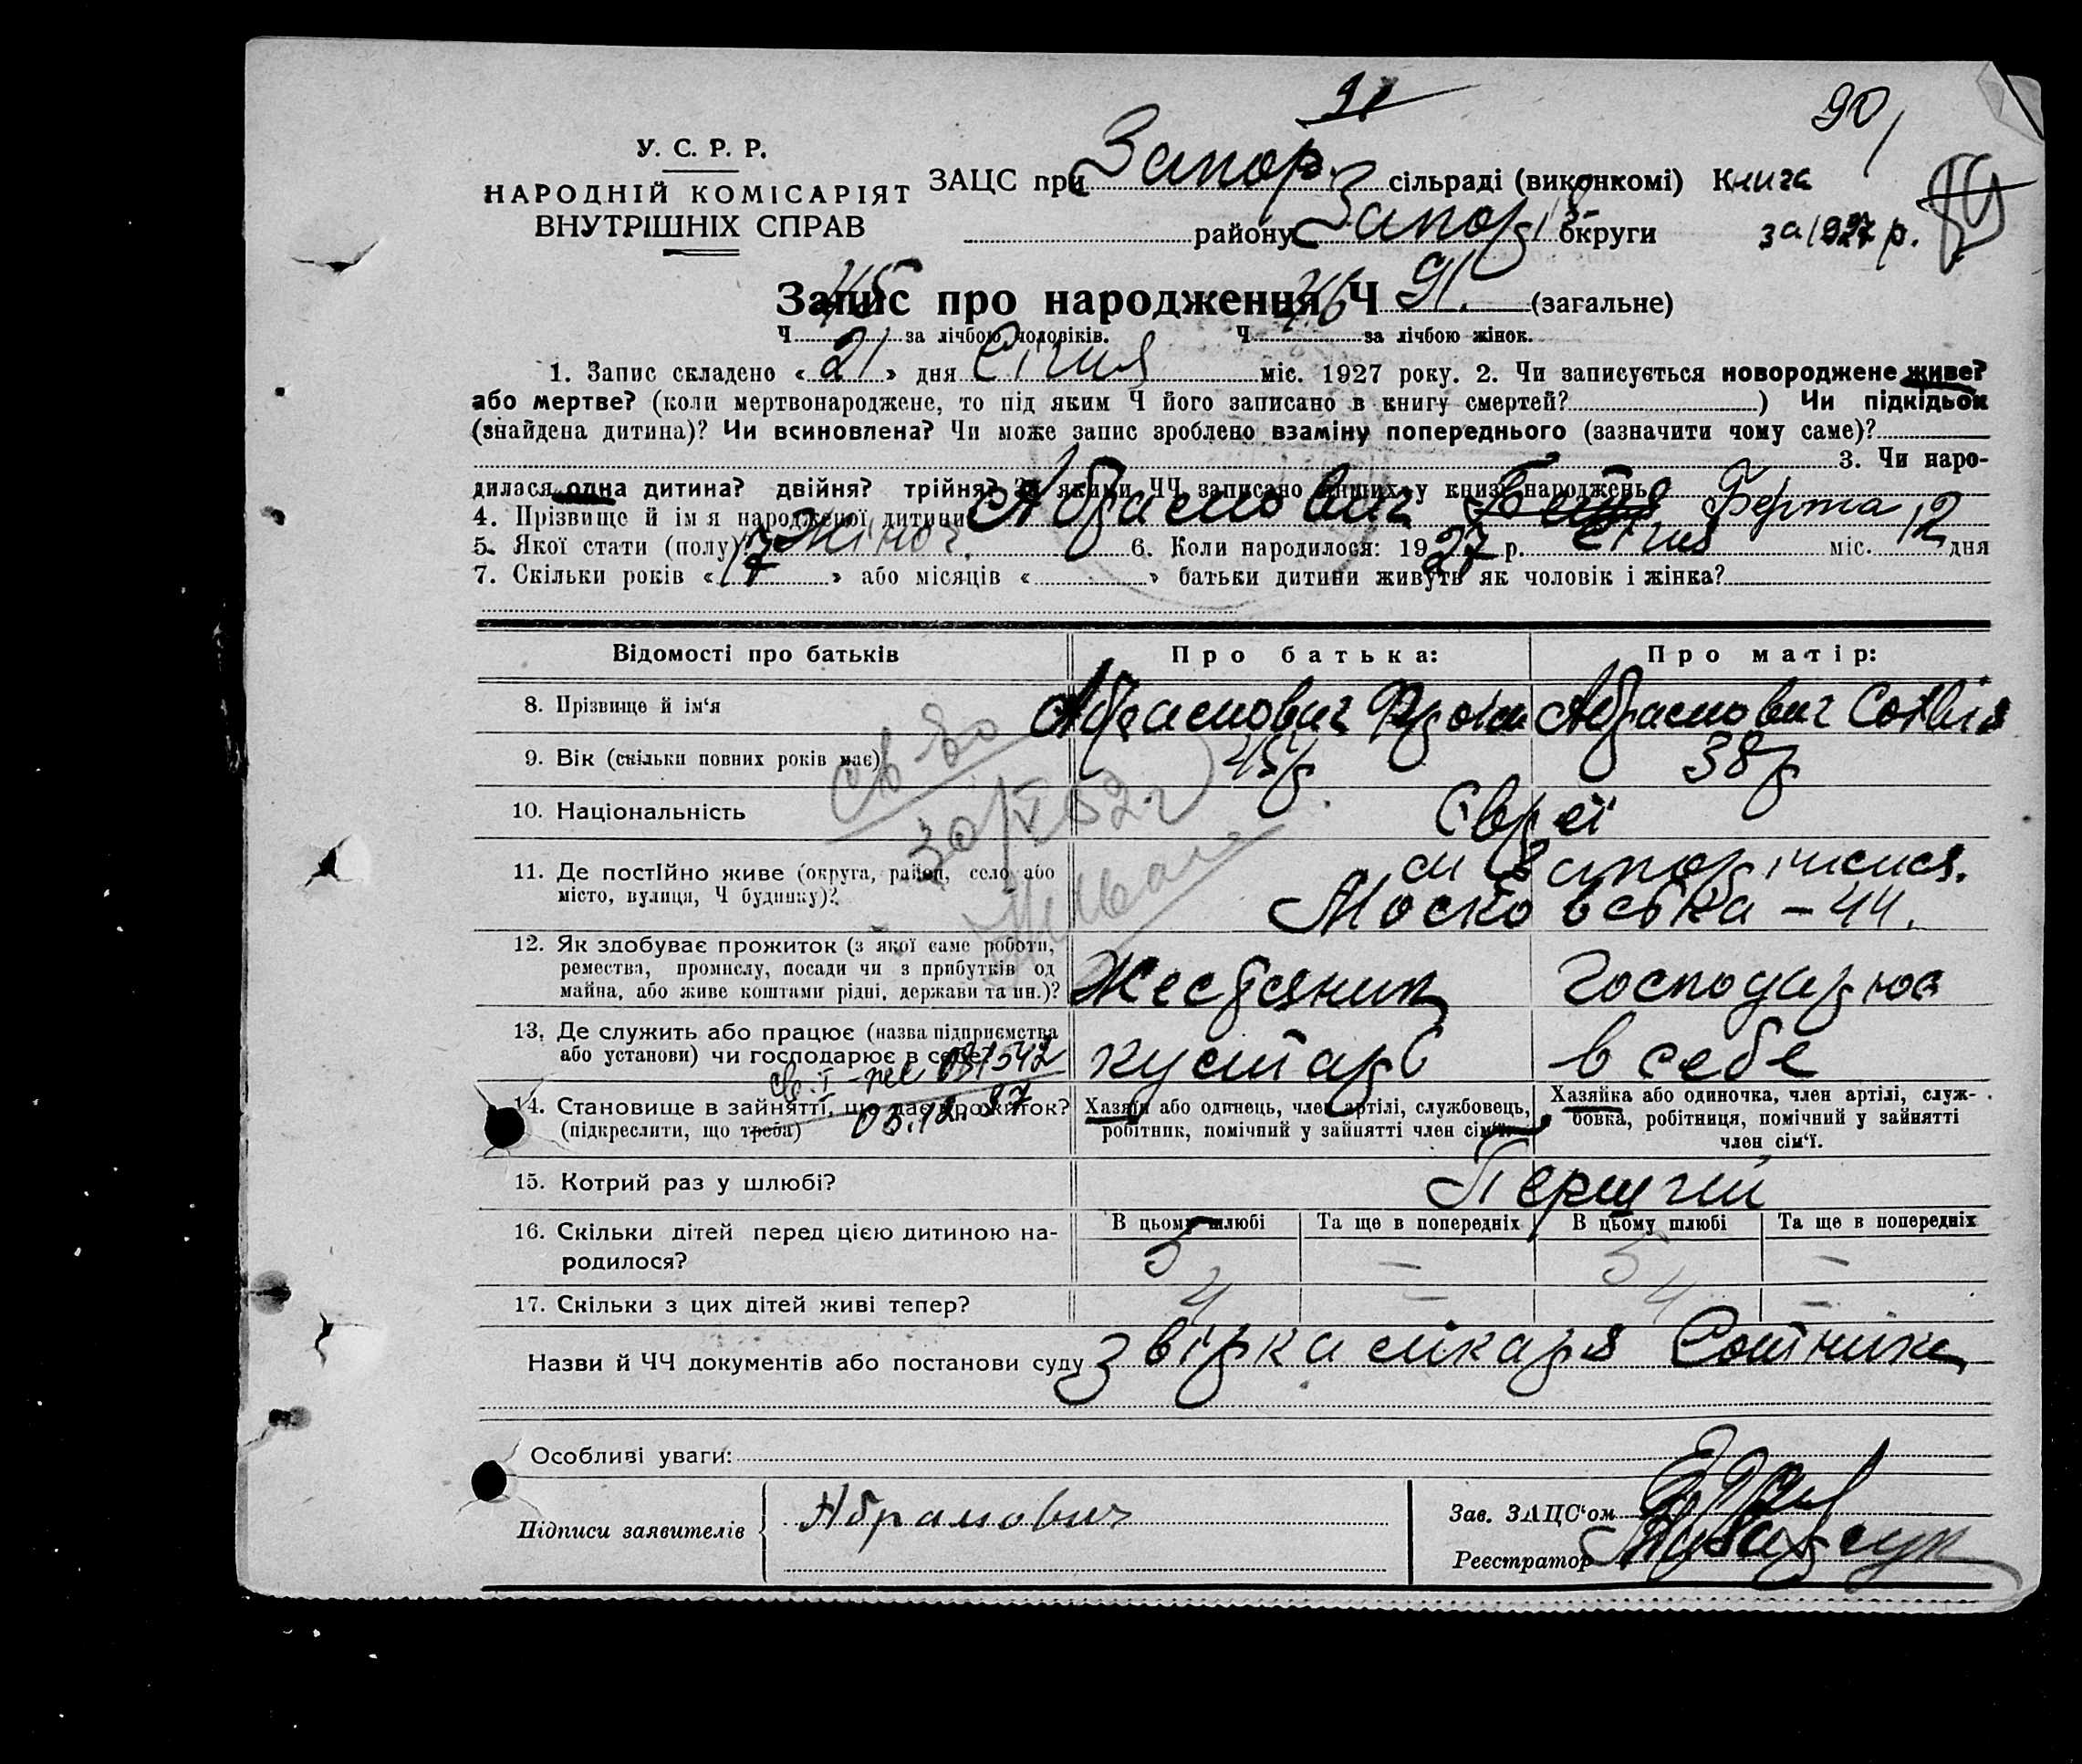 91
90
У. С. Р. Р.
НАРОДНІЙ КОМІСАРІЯТ
ВНУТРІШНІХ СПРАВ
ЗАЦС при Запор. сільраді (виконкомі) Книга
району Запоріз округи за 1927 р.
Запис про народження Ч 91. (загальне)
Ч 45 за лічбою чоловіків. Ч 46 за лічбою жінок.
1. Запис складено « 21 » дня Січня міс. 1927 року. 2. Чи записується новороджене живе?
або мертве? (коли мертвонароджене, то під яким Ч його записано в книгу смертей? ) Чи підкідьок
(знайдена дитина)? Чи всиновлена? Чи може запис зроблено взаміну попереднього (зазначити чому саме)?
3. Чи наро-
дилася одна дитина? двійня? трійня? За якими ЧЧ записано інших у книзі народжень?
4. Прізвище й ім'я народженої дитини Абрамович Берта
5. Якої стати (полу)? Жіноч. 6. Коли народилося: 1927 р. Січня міс. 12 дня
7. Скільки років « 17 » або місяців « » батьки дитини живуть як чоловік і жінка?
Відомості про батьків
Про батька:
Про матір:
8. Прізвище й ім'я
Абрамович
Абрамович Софія
9. Вік (скільки повних років має)
45 р
38 р
10. Національність
Євреї
11. Де постійно живе (округа, район, село або
місто, вулиця, Ч будинку)?
м Запоріжжя.
Московська – 44.
12. Як здобуває прожиток (з якої саме роботи,
ремества, промислу, посади чи з прибутків од
майна, або живе коштами рідні, держави та ин.)?
Жестяник
Господарює
13. Де служить або працює (назва підприємства
або установи) чи господарює в себе?
кустарь
в себе
14. Становище в зайнятті, що дає прожиток?
(підкреслити, що треба)
03.12.87
Хазяїн або одинець, член артілі, службовець,
робітник, помічний у зайнятті член сім'ї.
Хазяйка або одиночка, член артілі, служ-
бовка, робітниця, помічний у зайнятті
член сім'ї.
15. Котрий раз у шлюбі?
Перший
16. Скільки дітей перед цією дитиною на-
родилося?
В цьому шлюбі
Та ще в попередніх
В цьому шлюбі
Та ще в попередніх
5 – 5 –
17. Скільки з цих дітей живі тепер?
4 – 4 –
Назви й ЧЧ документів або постанови суду звірка лікаря Сотника
Особливі уваги:
Підписи заявителів
Абрамович
Зав. ЗАЦС'ом
Реєстратор